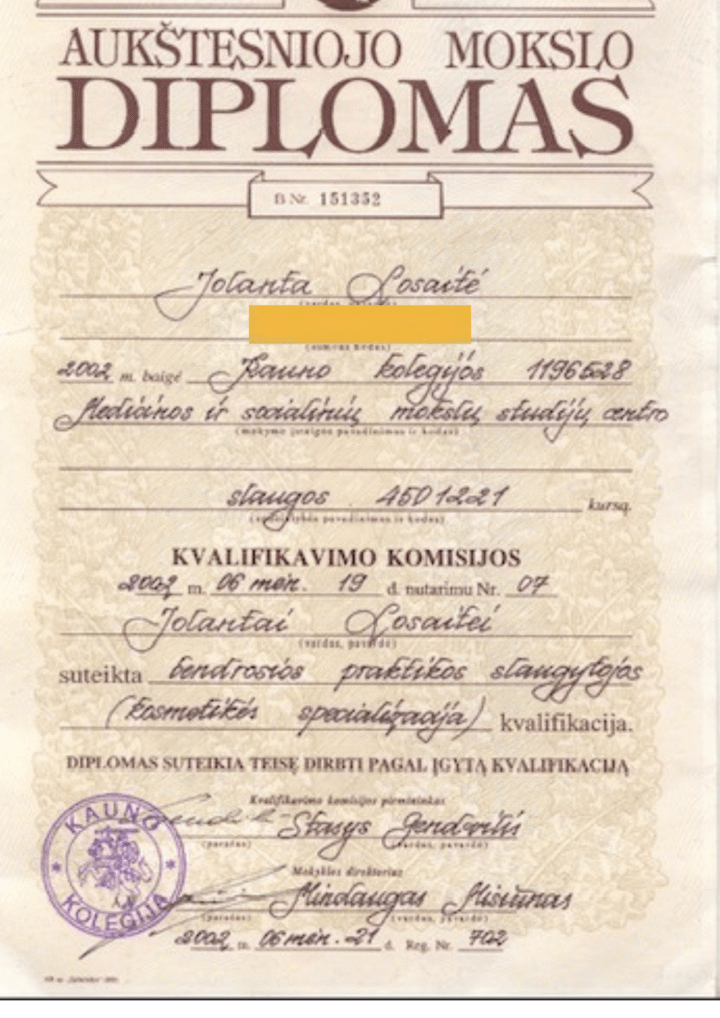 AUKŠTESNIOJO MOKSLO
DIPLOMAS
B Nr. 151352
Jolanta Losaitė
(vardas, pavardė)
(asmens kodas)
2002 m. baigė Kauno kolegijos 1196528
Medicinos ir socialinių mokslų studijų centro
(mokymo įstaigos pavadinimas ir kodas)
slaugos 4501221 kursą.
(specialybės pavadinimas ir kodas)
KVALIFIKAVIMO KOMISIJOS
2002 m. 06 mėn. 19 d. nutarimu Nr. 07
Jolantai Losaitei
(vardas, pavardė)
suteikta bendrosios praktikos slaugytojos
(kosmetikės specializacija) kvalifikacija.
DIPLOMAS SUTEIKIA TEISĘ DIRBTI PAGAL ĮGYTĄ KVALIFIKACIJĄ
Kvalifikavimo komisijos pirmininkas
Stasys Gendvilis
(parašas) (vardas, pavardė)
Mokyklos direktorius
Mindaugas Misiūnas
(parašas) (vardas, pavardė)
2002 m. 06 mėn. 21 d. Reg. Nr. 702
KAUNO
KOLEGIJA